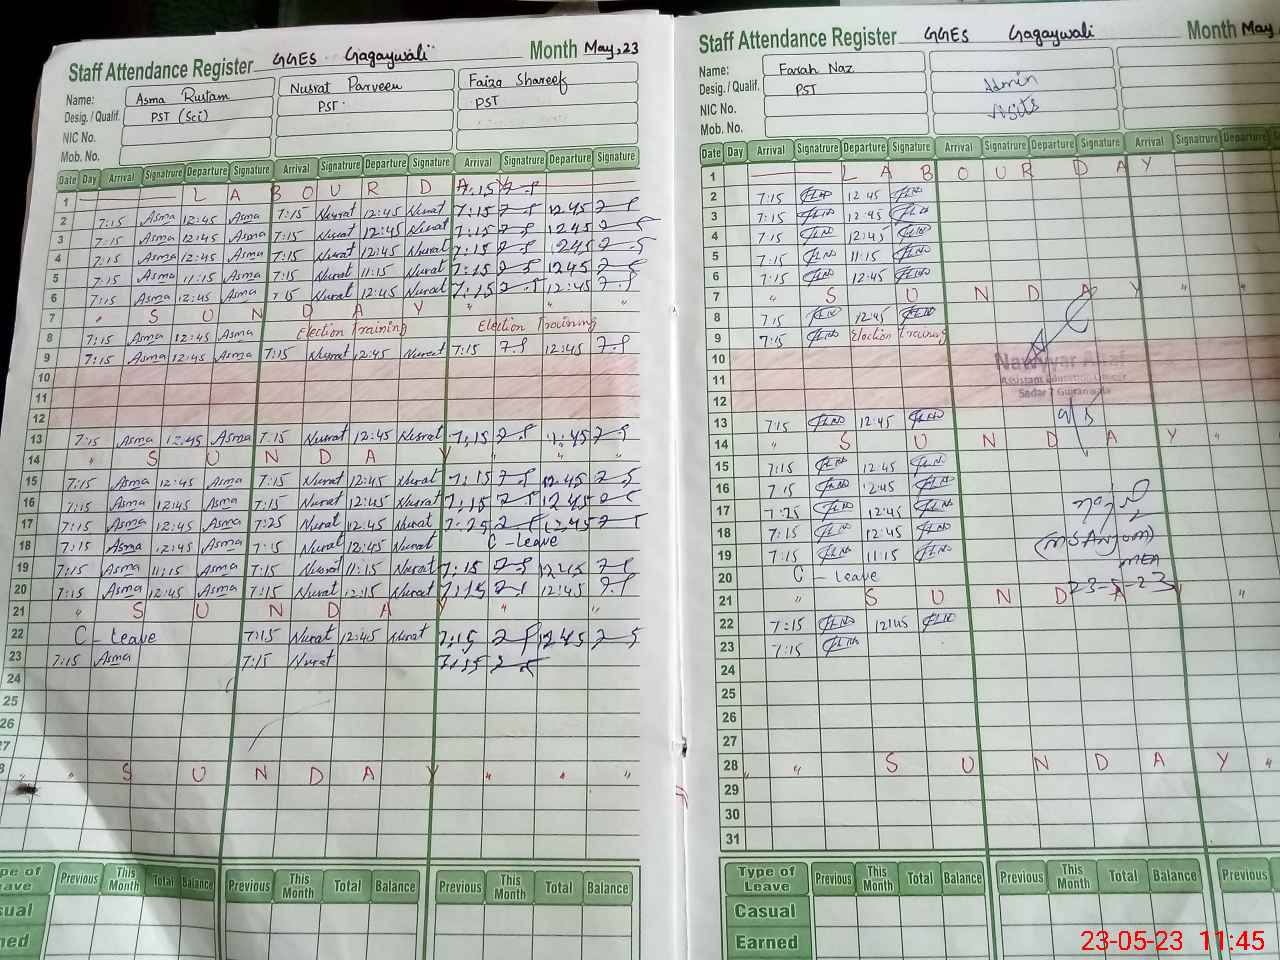 Staff Attendance Register GGES Gagaywali Month May, 23
Name: Asma Rustam Nusrat Parveen Faiza Shareef
Desig. / Qualif. PST (Sci) PST. PST
NIC No.
Mob. No.
Date Day Arrival Signatrure Departure Signature Arrival Signatrure Departure Signature Arrival Signatrure Departure Signature
1 L A B O U R D A 7:15
2 7:15 Asma 12:45 Asma 7:15 Nusrat 12:45 Nusrat 7:15 12:45
3 7:15 Asma 12:45 Asma 7:15 Nusrat 12:45 Nusrat 7:15 12:45
4 7:15 Asma 12:45 Asma 7:15 Nusrat 12:45 Nusrat 7:15 12:45
5 7:15 Asma 11:15 Asma 7:15 Nusrat 11:15 Nusrat 7:15 12:45
6 7:15 Asma 12:45 Asma 7:15 Nusrat 12:45 Nusrat 7:15 12:45
7 " S U N D A Y " "
8 7:15 Asma 12:45 Asma Election Training Election Training
9 7:15 Asma 12:45 Asma 7:15 Nusrat 12:45 Nusrat 7:15 12:45
10
11
12
13 7:15 Asma 12:45 Asma 7:15 Nusrat 12:45 Nusrat 7:15 12:45
14 " S U N D A Y " "
15 7:15 Asma 12:45 Asma 7:15 Nusrat 12:45 Nusrat 7:15 12:45
16 7:15 Asma 12:45 Asma 7:15 Nusrat 12:45 Nusrat 7:15 12:45
17 7:15 Asma 12:45 Asma 7:25 Nusrat 12:45 Nusrat 7:25 12:45
18 7:15 Asma 12:45 Asma 7:15 Nusrat 12:45 Nusrat C - Leave
19 7:15 Asma 11:15 Asma 7:15 Nusrat 11:15 Nusrat 7:15 12:45
20 7:15 Asma 12:45 Asma 7:15 Nusrat 12:45 Nusrat 7:15 12:45
21 " S U N D A Y " "
22 C - Leave 7:15 Nusrat 12:45 Nusrat 7:15 12:45
23 7:15 Asma 7:15 Nusrat 7:15
24
25
26
27
8 " S U N D A Y " " "
pe of Leave Previous This Month Total Balance Previous This Month Total Balance Previous This Month Total Balance
sual
ned
Staff Attendance Register GGES Gagaywali Month May,
Name: Farah Naz
Desig. / Qualif. PST Admin
NIC No. Visits
Mob. No.
Date Day Arrival Signatrure Departure Signature Arrival Signatrure Departure Signature Arrival Signatrure Departure
1 L A B O U R D A Y
2 7:15 12:45
3 7:15 12:45
4 7:15 12:45
5 7:15 11:15
6 7:15 12:45
7 " S U N D A Y " "
8 7:15 12:45
9 7:15 Election Training
10
11
12
Assistant Education Officer
Sadar 7 Gujranwala
13 7:15 12:45
14 " S U N D A Y "
15 7:15 12:45
16 7:15 12:45
17 7:25 12:45
18 7:15 12:45
19 7:15 11:15
MEA
20 C - Leave
23-5-23
21 " S U N D A Y "
22 7:15 12:45
23 7:15
24
25
26
27
28 " " S U N D A Y "
29
30
31
Type of Leave Previous This Month Total Balance Previous This Month Total Balance Previous
Casual
Earned
23-05-23 11:45